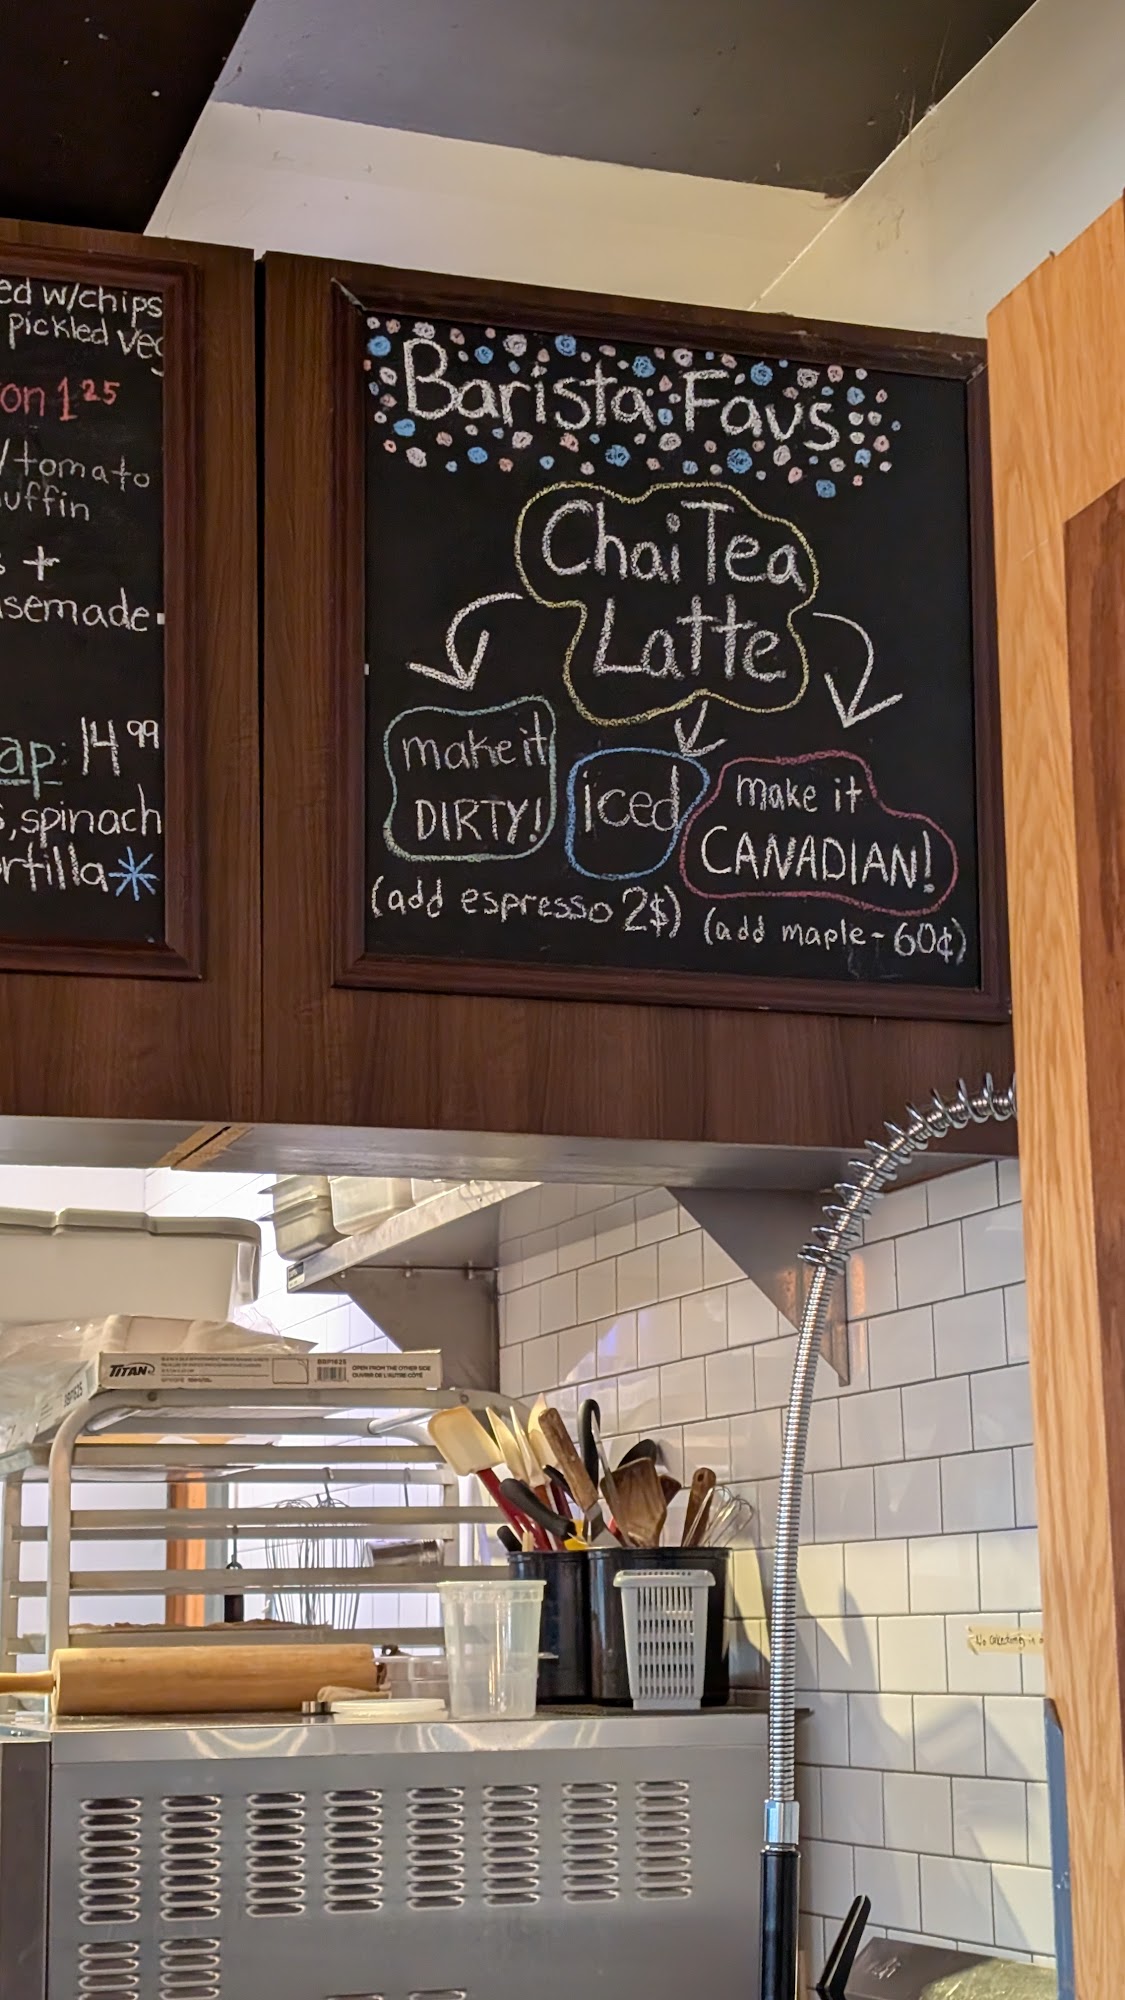 w/chips
pickled
1 25
tomato
+
14 99
spinach
Barista Favs
Chai Tea
Latte
make it
DIRTY!
(add espresso 2$)
iced
make it
CANADIAN!
(add maple - 60¢)
TITAN
BBP1625
OPEN FROM THE OTHER SIDE
OUVRIR DE L'AUTRE CÔTÉ
BBP1625